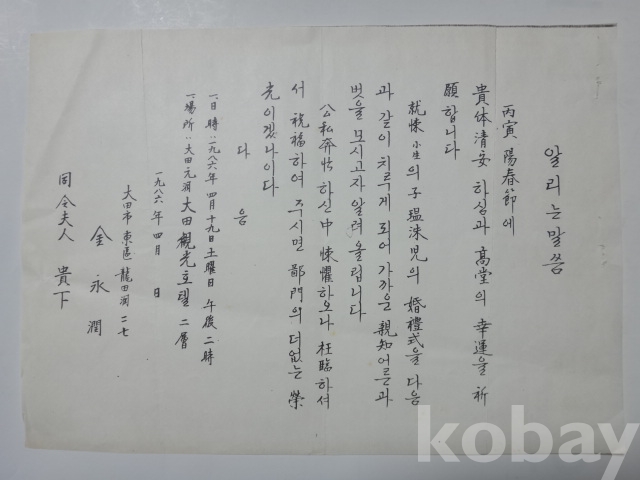 알리는 말씀
丙寅 陽春節에
貴体淸安 하심과 高堂의 幸運을 祈
願 합니다
就悚 小生의 子 塭洙児의 婚禮式을 다음
과 같이 치루게 되어 가까운 親知어른과
벗을 모시고자 알려 올립니다
公私奔忙 하신 中 悚懼하오나 枉臨하셔
서 祝福하여 주시면 鄙門의 더없는 榮
光이겠나이다
다 음
一. 日 時 : 一九八六年 四月 十九日 土曜日 午後 二時
一. 場所 : 大田 元洞 大田 觀光호텔 二層
一九八六年 四月 日
大田市 東區 龍田洞 二七
金 永 潤
同令夫人 貴下
kobay